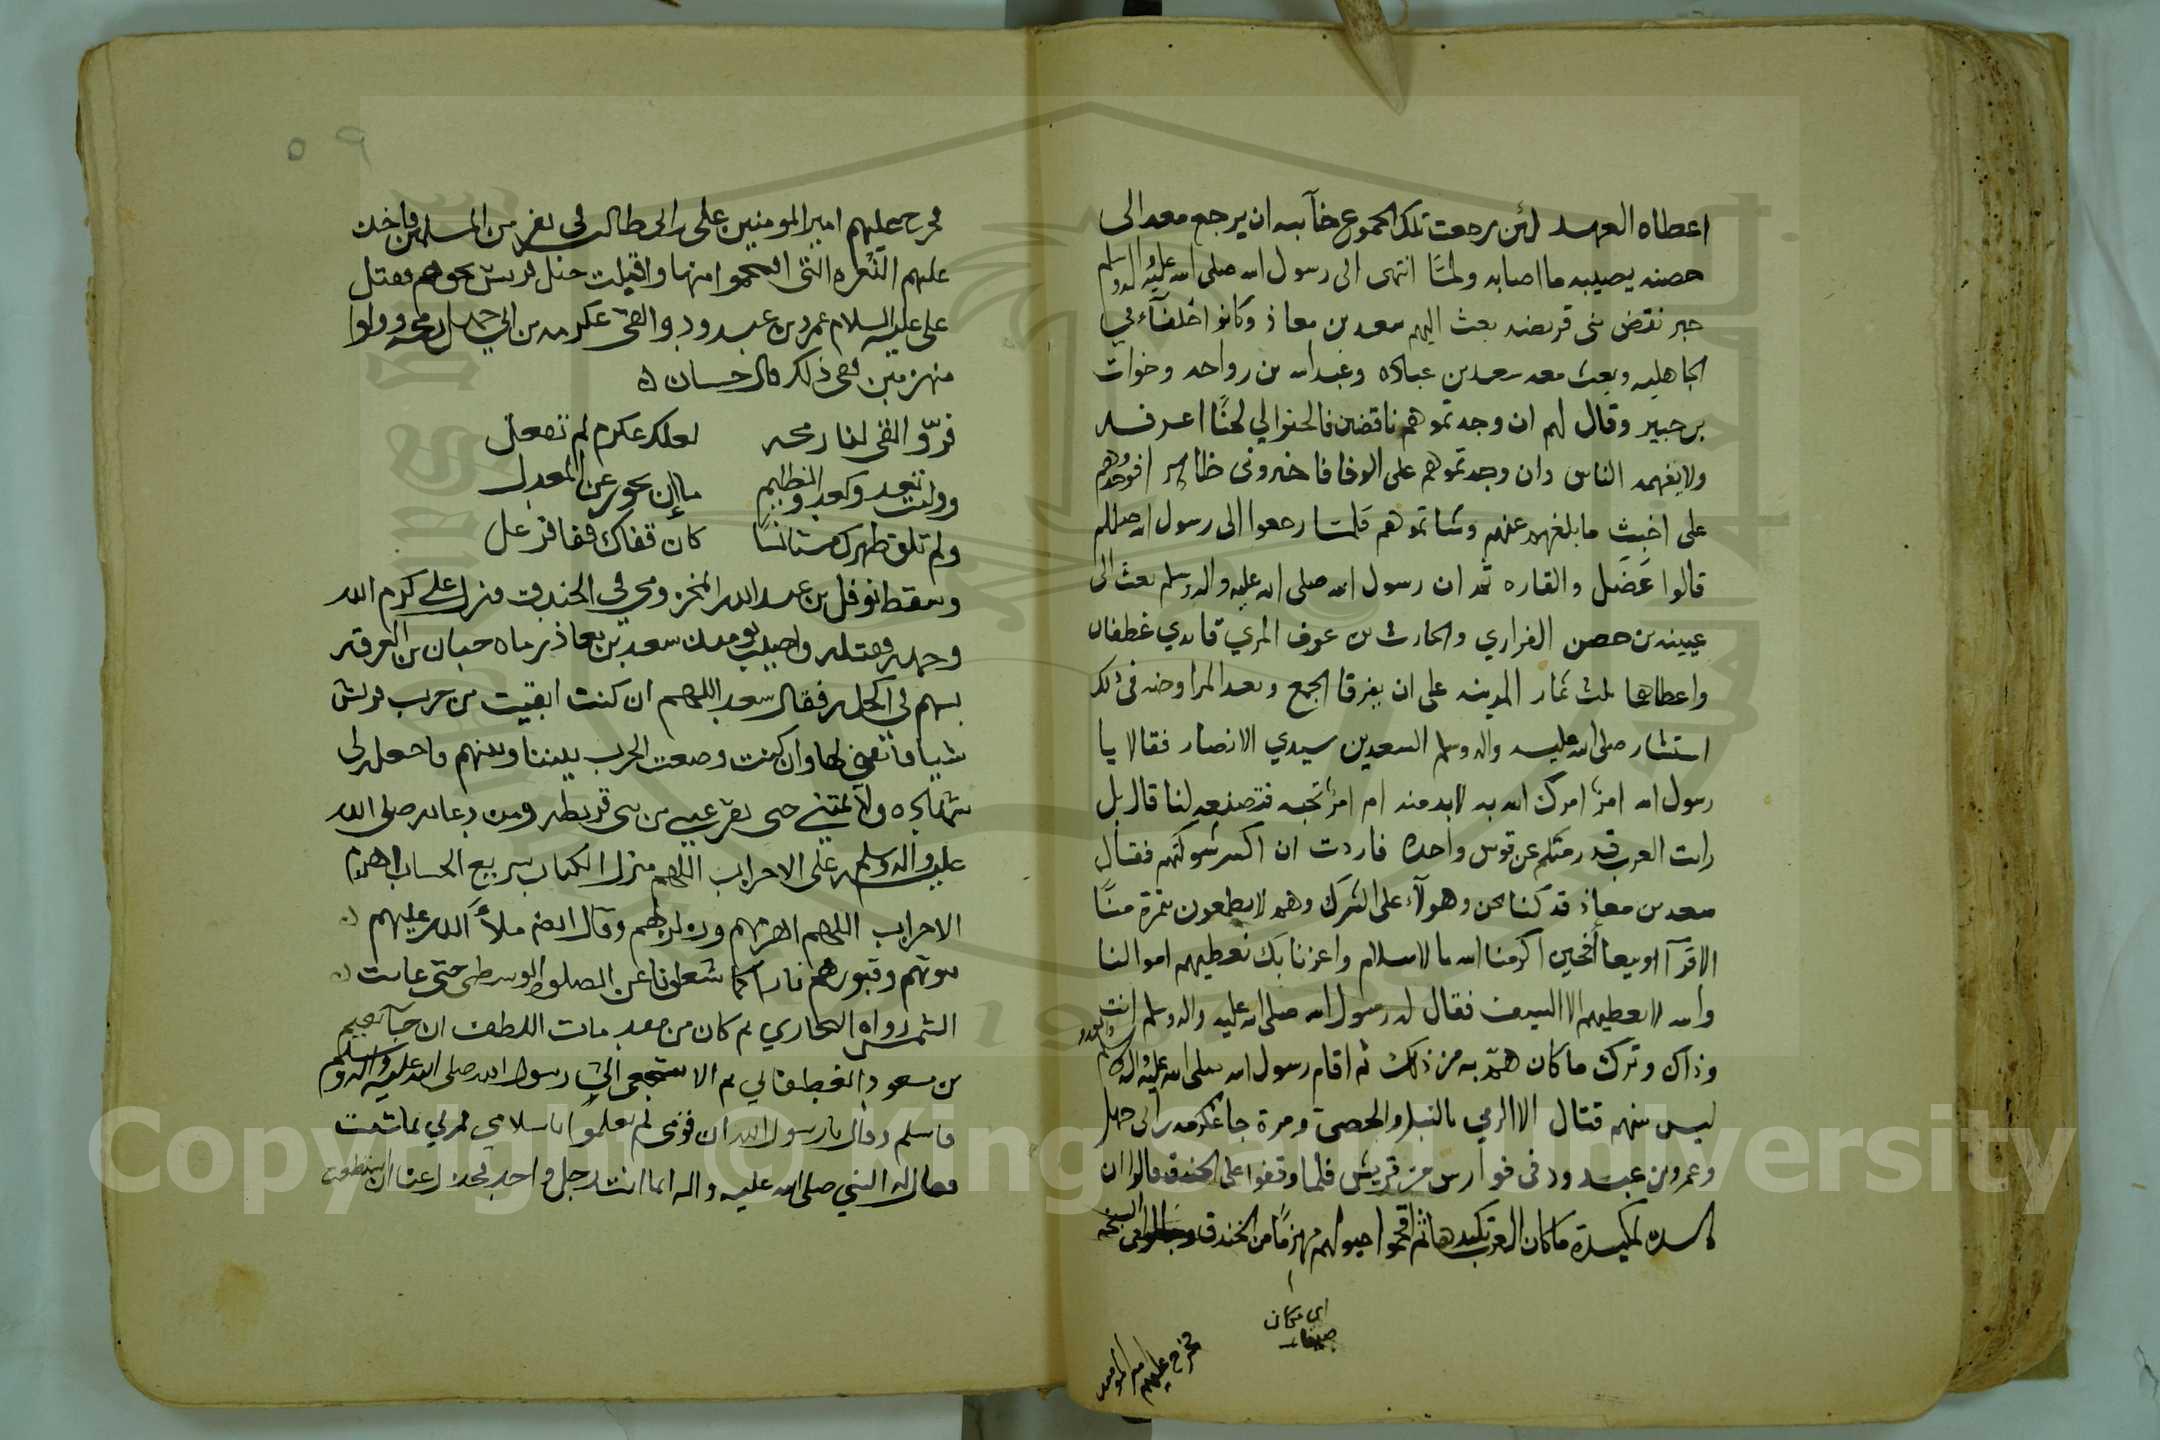 اعطاه العهد لئن رجعت تلك الجموع خآيبه ان يرجع معه الى
حصنه يصيبه ما اصابه ولمّا انتهى الى رسول الله صلى الله عليه واله وسلم
خبر نقض بنى قريضه بعث اليهم سعد بن معاذ وكانوا احلفآء في
الجاهليه وبعث معه سعد بن عباده وعبدالله بن رواحه وخوات
بن جبير وقال لهم ان وجدتموهم ناقضين فالحنوا لي لحنًا اعرفه
ولا يفهمه الناس وان وجدتموهم على الوفا فاخبروني ظاهر افوجدوهم
على اخبث ما بلغهم عنهم وشاتموهم فلمّا رجعوا الى رسول الله صلعم
قالوا عَضَل والقاره ثم ان رسول الله صلى الله عليه واله وسلم بعث الى
عيينه بن حصن الفزاري والحارث بن عوف المري قايدي غطفان
واعطاهما ثلث ثمار المدينه على ان يفرقا الجمع وبعد المراوضه في ذلك
استشار صلى الله عليه واله وسلم السعدين سيدي الانصار فقالا يا
رسول الله امرٌ امرك الله به لابد منه ام امرٌ تحبه فنصنعه لنا قال بل
رايت العرب قد رمتكم عن قوس واحده فاردت ان اكسر شوكتهم فقال
سعد بن معاذ قد كنا نحن وهولآء على الشرك وهم لا يطمعون بتمرة منّا
الا قرآ او بيعا أفحين اكرمنا الله بالاسلام واعزنا بك نعطيهم اموالنا
والله لا نعطيهم الا السيف فقال له رسول الله صلى الله عليه واله وسلم انت
وذاك وترك ما كان همّ به من ذلك ثم اقام رسول الله صلى الله عليه واله وسلم والعدو
ليس بينهم قتال الا الرمي بالنبل والحصى ومرة جا عكرمه بن ابي جهل
وعمرو بن عبد ود في فوارس من قريش فلما وقفوا على الخندق قالوا ان
هذه لمكيدة ما كان العرب تكيدها ثم اقحموا خيولهم مهزمًا من الخندق وجالوا في السبخه
اي مكان
ضيق
فخرج عليهم امير المومنين
٥٩
فخرج عليهم امير المومنين على بن ابى طالب في نفر من المسلمين فاخذ
عليهم الثغره التى اقتحموا منها واقبلت خيل قريش نحوهم فقتل
على عليه السلام عمرو بن عبد ود والقى عكرمه بن ابي جهل رمحه وولوا
منهزمين ففى ذلك قال حسان
فرّ والقى لنا رمحه لعلك عكرم لم تفعل
ووليت تعدو كعدو الظليم ما إن يحور عن المعدل
ولم تلق ظهرك مستانسًا كان قفاك قفا فرعل
وسقط نوفل بن عبدالله المخزومي في الخندق فنزل علي كرم الله
وجهه فقتله واصيب يومئذ سعد بن معاذ رماه حبان بن العرقه
بسهم في اكحله فقال سعد اللهم ان كنت ابقيت من حرب قريش
شيا فأبقني لها وان كنت وضعت الحرب بيننا وبينهم فاجعله لي
شهاده ولا تمتني حتى تقر عيني من بنى قريظه ومن دعايه صلى الله
عليه واله وسلم على الاحزاب اللهم منزل الكتاب سريع الحساب اهزم
الاحزاب اللهم اهزمهم وزلزلهم وقال ايضا ملأ الله عليهم
بيوتهم وقبورهم نارا كما شغلونا عن الصلوة الوسطى حتى غابت
الشمس رواه البخاري ثم كان من بات اللطف ان جآ نعيم
بن مسعود الغطفاني ثم الاشجعي الى رسول الله صلى الله عليه واله وسلم
فاسلم وقال يا رسول الله ان قومى لم يعلموا باسلامي فمرني بما شئت
فقال له النبي صلى الله عليه واله انما انت رجل واحد فخذل عنا ان استطعت